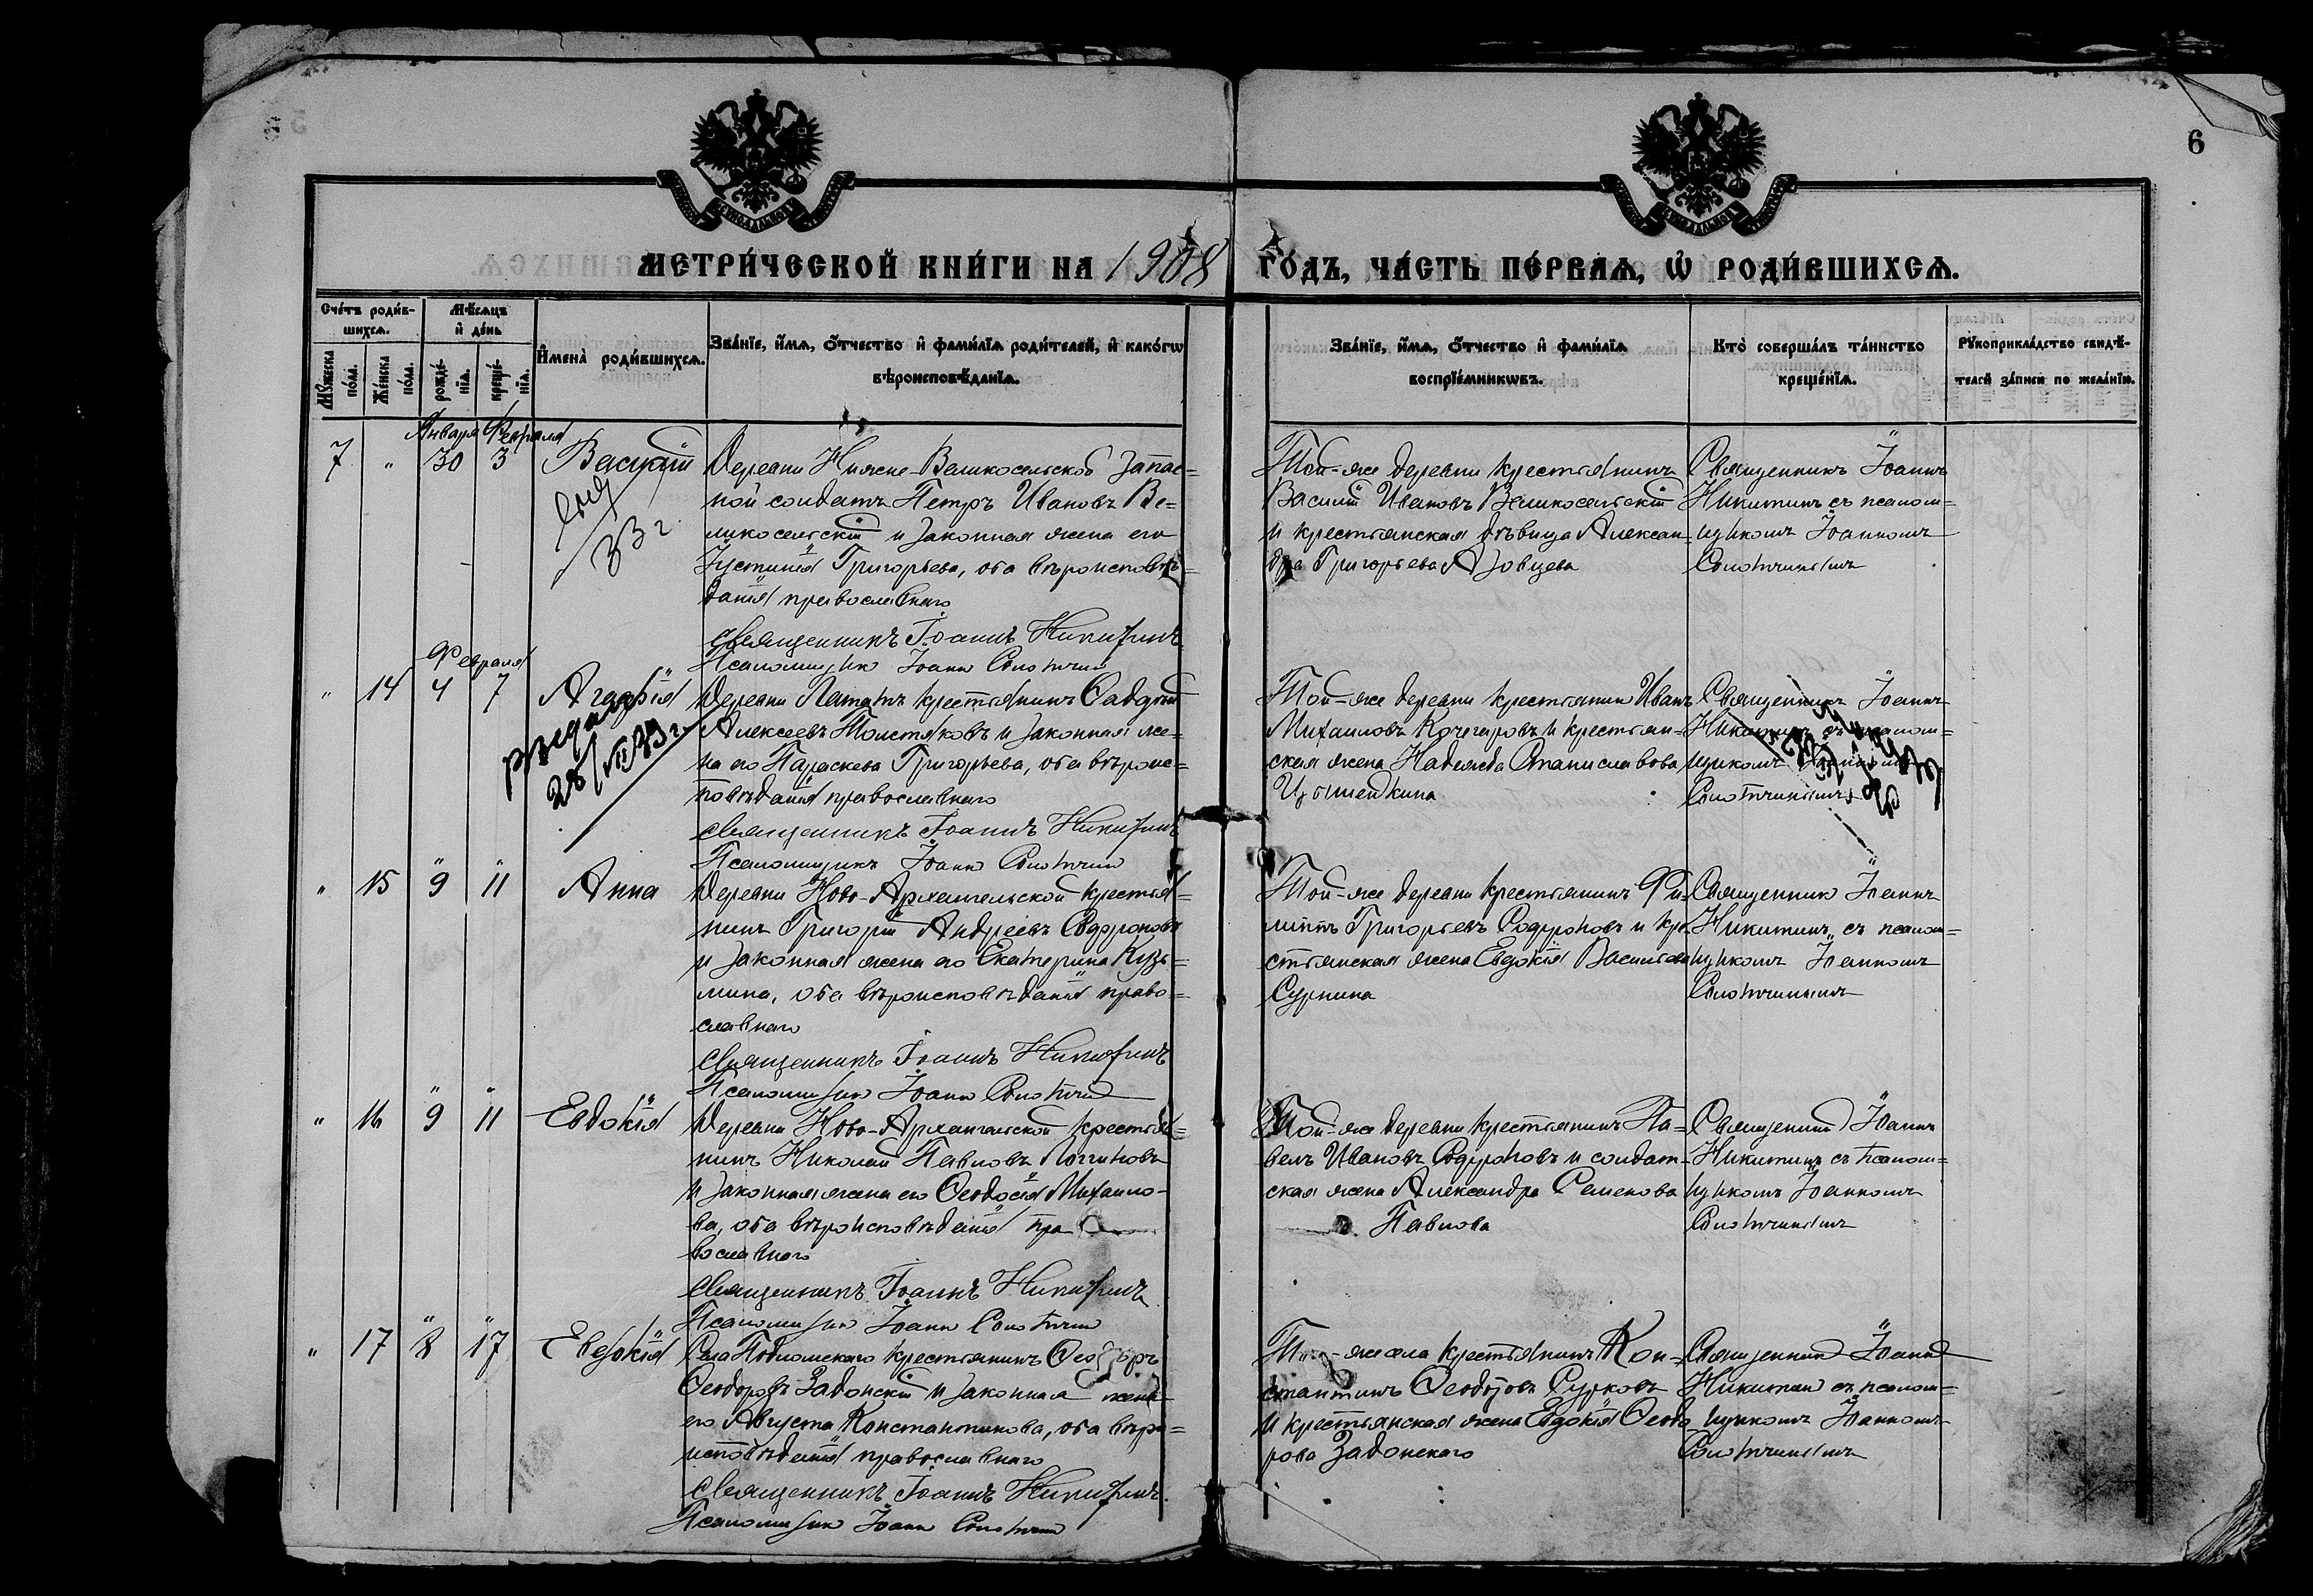 6
МЕТРИ́ЧЕСКОЙ КНИ́ГИ НА 1908 ГО́ДЪ, ЧА́СТЬ ПЕ́РВАѦ, Ѡ҆ РОДИ́ВШИХСѦ.
Сче́тъ роди́в-
шихсѧ.
Мѣ́сѧцъ
и҆ де́нь
И҆мена̀ роди́вшихсѧ.
Зва́нїе, и҆́мѧ, ѻ҆́тчество и҆ фами́лїѧ роди́телей, и҆ како́гѡ
вѣроисповѣ́данїѧ.
Мꙋ́жеска
по́ла.
Же́нска
по́ла.
рожде́-
нїѧ.
креще́-
нїѧ.
Зва́нїе, и҆́мѧ, ѻ҆́тчество и҆ фами́лїѧ
воспрїе́мникѡвъ.
Кто̀ соверша́лъ та́инство
креще́нїѧ.
Рꙋкоприкла́дство свидѣ́-
телей за́писи по жела́нїю.
Января Февраля
7 " 30 3 Василій
33 г.
Деревни Нижне-Великосельской запас=
ной солдатъ Петръ Ивановъ Ве=
ликосельскій и законная жена его
Іустинія Григорьева, оба вѣроисповѣ=
данія православнаго
Священникъ Іоаннъ Никитинъ
Псаломщик Іоанн
Той-же деревни крестьянинъ
Василій Ивановъ Великосельскій
и крестьянская дѣвица Алексан
дра Григорьева Азовцева
Священникъ Іоаннъ
Никитинъ съ псалом=
щикомъ Іоанномъ
Февраля
" 14 4 7 Агафія
28/VII 33 г.
Деревни крестьянинъ
Алексеевъ Толстяковъ и законная же-
на его Параскева Григорьева, оба вѣроис=
повѣданія православнаго
Священникъ Іоаннъ Никитинъ
Псаломщикъ Іоанн
Той-же деревни крестьянин Иванъ
Михаиловъ Кочегаровъ и крестьян-
ская жена Надежда Станиславова
Священникъ Іоаннъ
Никитинъ съ псалом=
щикомъ Іоанномъ
" 15 9 11 Анна
Деревни Ново-Архангельской крестья=
нинъ Григорій Андреевъ Софроновъ
и законная жена его Екатерина Кузь=
мина, оба вѣроисповѣданія право=
славнаго
Священникъ Іоаннъ Никитинъ
Псаломщик Іоанн
Той-же деревни крестьянинъ Фи-
липъ Григорьевъ Софроновъ и кре
стьянская жена Евдокія Васильева
Сурнина
Священник Іоаннъ
Никитинъ съ псалом=
щикомъ Іоанномъ
" 16 9 11 Евдокія
Деревни Ново-Архангельской крестья=
нинъ Николай Павловъ Логиновъ
и законная жена его Ѳеодосія Михаило-
ва, оба вѣроисповѣданія пра
вославнаго
Священникъ Іоаннъ Никитинъ
Псаломщик Іоанн
Той-же деревни крестьянинъ Па=
велъ Ивановъ Софроновъ и солдат-
ская жена Александра Семенова
Павлова
Священник Іоаннъ
Никитинъ съ псалом=
щикомъ Іоанномъ
" 17 8 17 Евдокія
Села Подломскаго крестьянинъ Ѳеодоръ
Ѳеодоровъ Задонскій и законная жена
его Августа Константинова, оба вѣро=
исповѣданія православнаго
Священникъ Іоаннъ Никитинъ
Псаломщик Іоанн
Того-же села крестьянинъ Кон-
стантинъ Ѳеодоровъ Сурковъ
и крестьянская жена Евдокія Ѳеодо
рова Задонскаго
Священник Іоанн
Никитин съ псалом=
щикомъ Іоанномъ